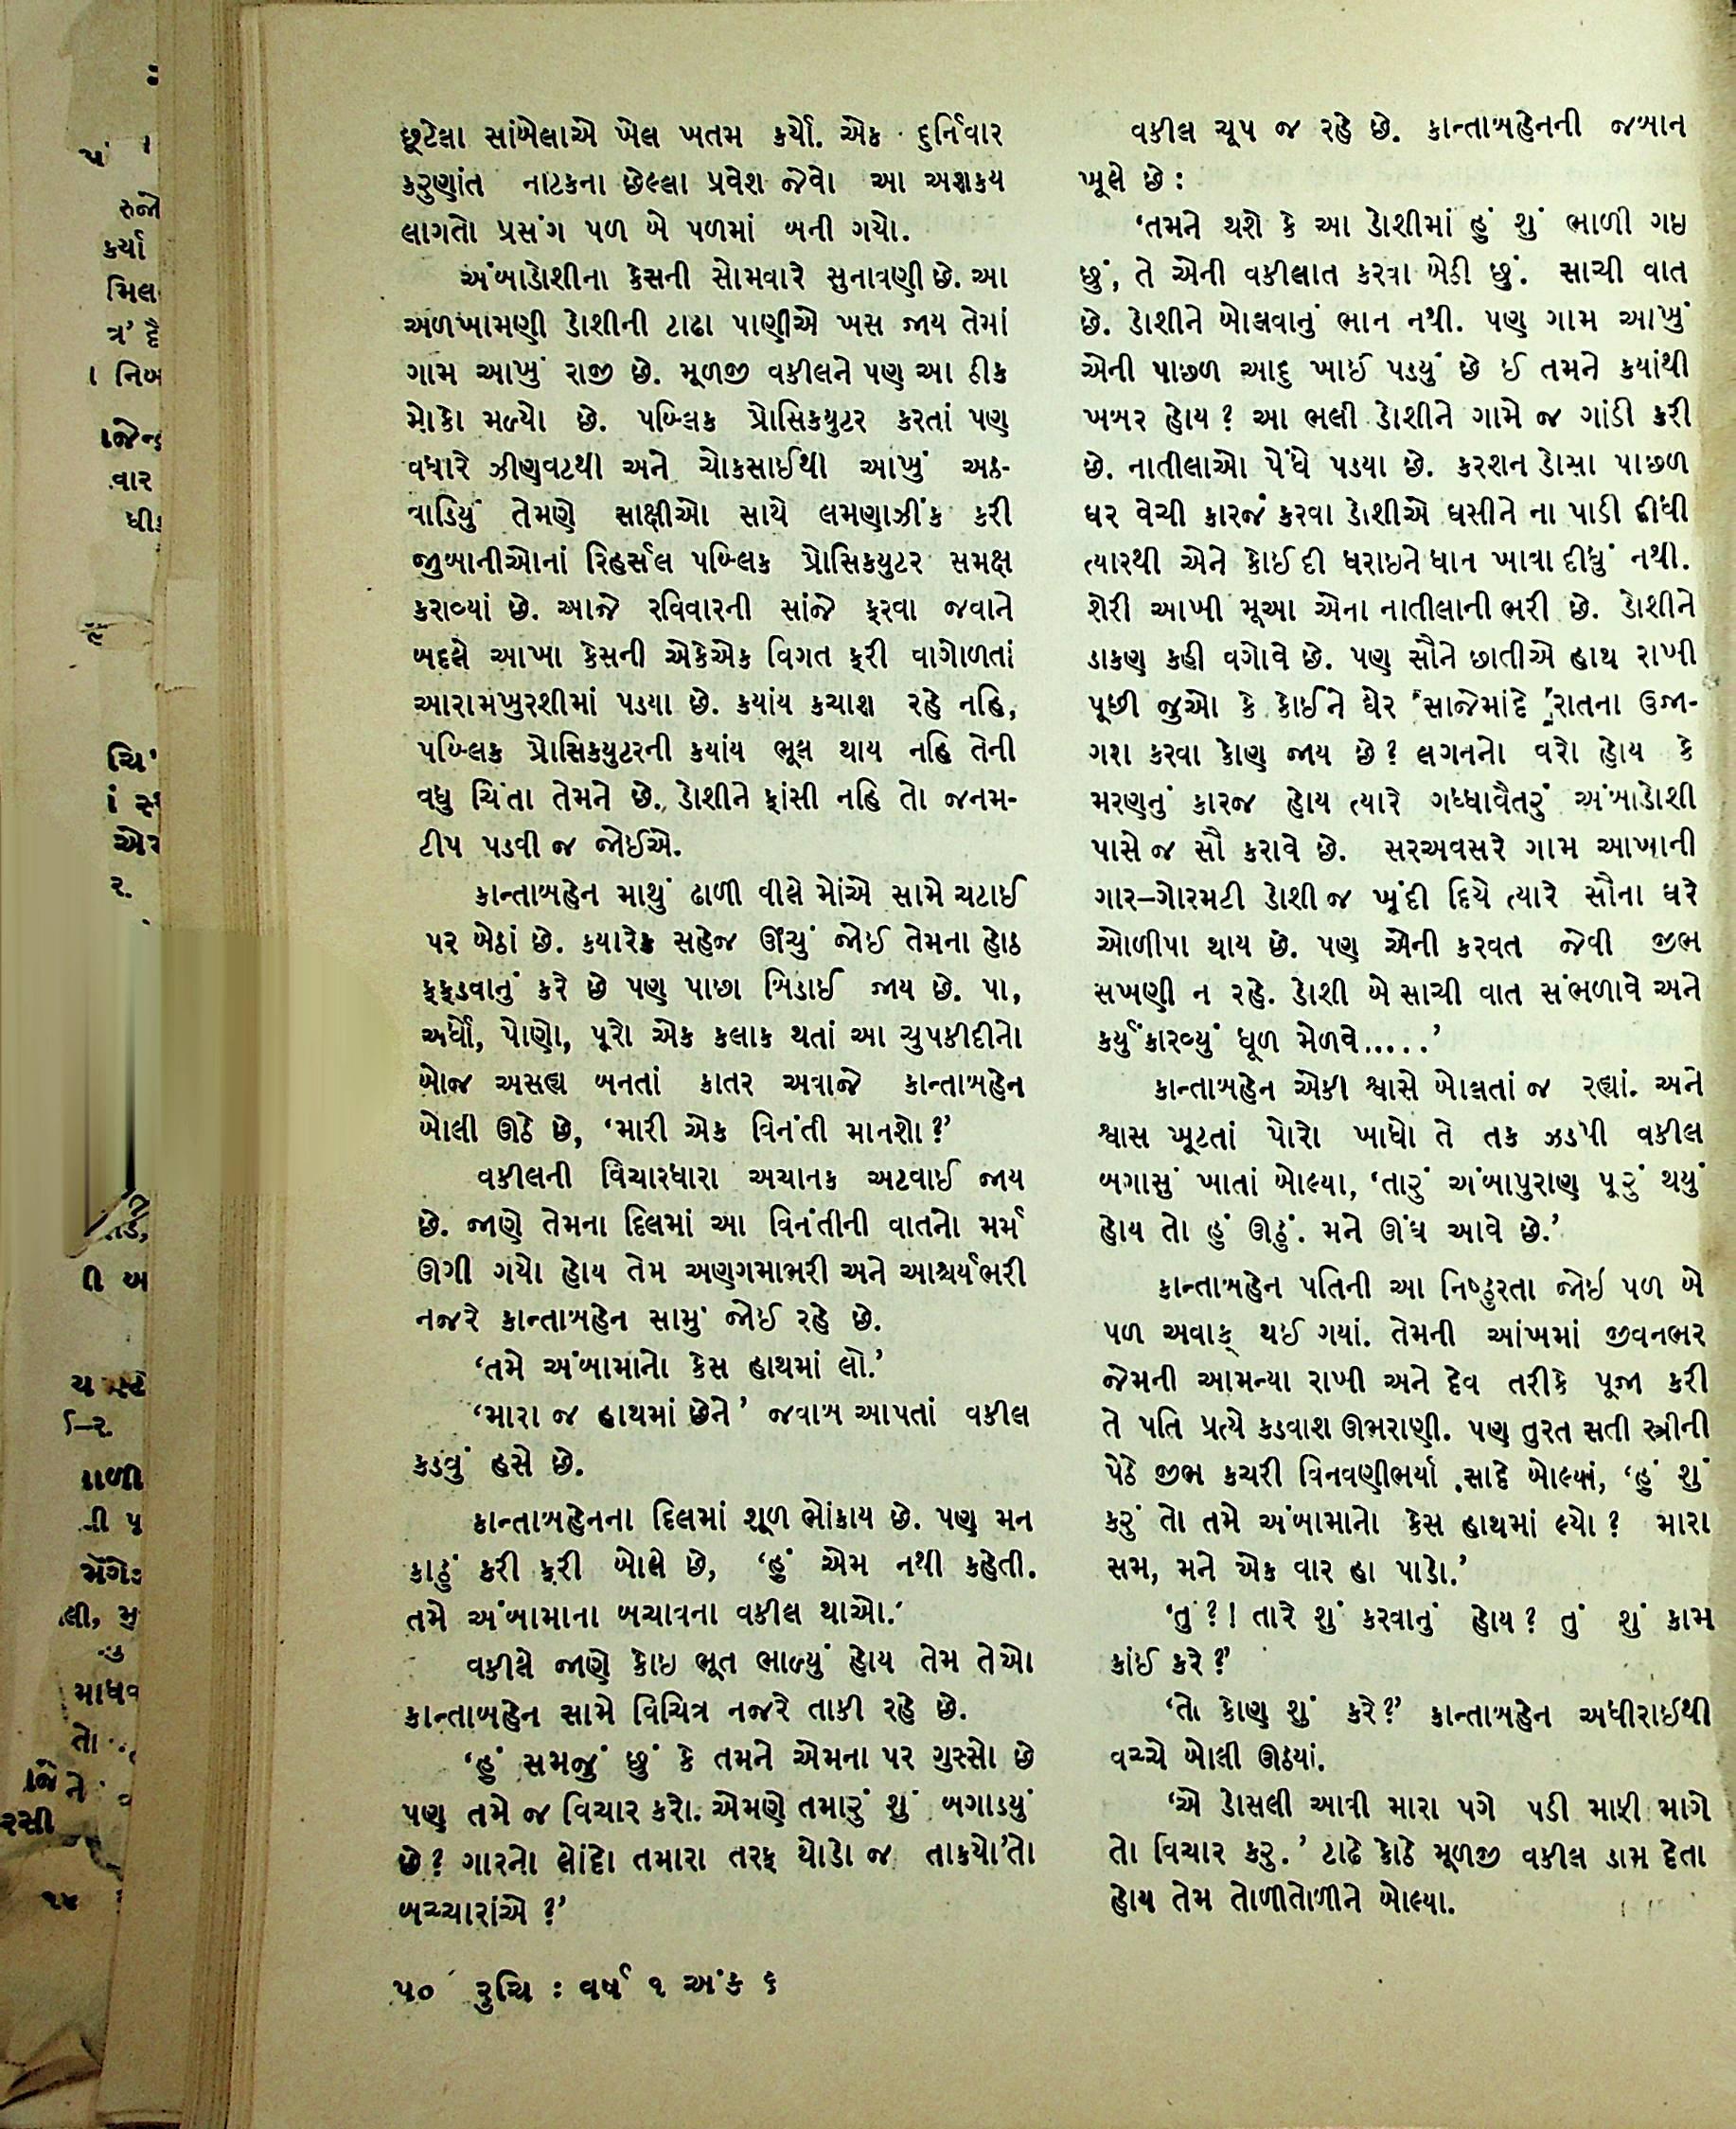 છૂટેલા સાંબેલાએ ખેલ ખતમ કર્યો. એક દુર્નિવાર
કરુણાંત નાટકના છેલ્લા પ્રવેશ જેવો આ અશક્ય
લાગતો પ્રસંગ પળ બે પળમાં બની ગયો.
અંબાડોશીના કેસની સોમવારે સુનાવણી છે. આ
અળખામણી ડોશીની ટાઢા પાણીએ ખસ જાય તેમાં
ગામ આખું રાજી છે. મૂળજી વકીલને પણ આ ઠીક
મોકો મળ્યો છે. પબ્લિક પ્રોસિક્યુટર કરતાં પણ
વધારે ઝીણવટથી અને ચોકસાઈથી આખું અઠ-
વાડિયું તેમણે સાક્ષીઓ સાથે લમણાઝીંક કરી
જુબાનીઓનાં રિહર્સલ પબ્લિક પ્રોસિક્યુટર સમક્ષ
કરાવ્યાં છે. આજે રવિવારની સાંજે ફરવા જવાને
બદલે આખા કેસની એકેએક વિગત ફરી વાગોળતાં
આરામખુરશીમાં પડયા છે. કયાંય કચાશ રહે નહિ,
પબ્લિક પ્રોસિક્યુટરની કયાંય ભૂલ થાય નહિ તેની
વધુ ચિંતા તેમને છે. ડોશીને ફાંસી નહિ તો જનમ-
ટીપ પડવી જ જોઈએ.
કાન્તાબહેન માથું ઢાળી વીલે મોંએ સામે ચટાઈ
પર બેઠાં છે. કયારેક સહેજ ઊંચું જોઈ તેમના હોઠ
ફફડવાનું કરે છે પણ પાછા બિડાઈ જાય છે. પા,
અર્ધો, પોણો, પૂરો એક કલાક થતાં આ ચુપકીદીનો
બોજ અસહ્ય બનતાં કાતર અવાજે કાન્તાબહેન
બોલી ઊઠે છે, ‘મારી એક વિનંતી માનશો?’
વકીલની વિચારધારા અચાનક અટવાઈ જાય
છે. જાણે તેમના દિલમાં આ વિનંતીની વાતનો મર્મ
ઊગી ગયો હોય તેમ અણગમાભરી અને આશ્ચર્યભરી
નજરે કાન્તાબહેન સામુ જોઈ રહે છે.
‘તમે અંબામાનો કેસ હાથમાં લો.’
‘મારા જ હાથમાં છેને’ જવાબ આપતાં વકીલ
કડવું હસે છે.
કાન્તાબહેનના દિલમાં શૂળ ભોંકાય છે. પણ મન
કાઠું કરી ફરી બોલે છે, ‘હું એમ નથી કહેતી.
તમે અંબામાના બચાવના વકીલ થાઓ.’
વકીલે જાણે કોઇ ભૂત ભાળ્યું હોય તેમ તેઓ
કાન્તાબહેન સામે વિચિત્ર નજરે તાકી રહે છે.
‘હું સમજું છું કે તમને એમના પર ગુસ્સો છે
પણ તમે જ વિચાર કરો. એમણે તમારું શું બગાડયું
છે? ગારનો લોંદો તમારા તરફ થોડો જ તાકયો’તો
બચ્ચારાંએ ?’
વકીલ ચૂપ જ રહે છે. કાન્તાબહેનની જબાન
ખૂલે છે :
‘તમને થશે કે આ ડોશીમાં હું શું ભાળી ગઇ
છું, તે એની વકીલાત કરવા બેઠી છું. સાચી વાત
છે. ડોશીને બોલવાનું ભાન નથી. પણ ગામ આખું
એની પાછળ આદુ ખાઈ પડયું છે ઈ તમને કયાંથી
ખબર હોય? આ ભલી ડોશીને ગામે જ ગાંડી કરી
છે. નાતીલાઓ પેંધે પડયા છે. કરશન ડોસા પાછળ
ઘર વેચી કારજ કરવા ડોશીએ ઘસીને ના પાડી દીધી
ત્યારથી એને કોઈ દી ધરાઇને ધાન ખાવા દીધું નથી.
શેરી આખી મૂઆ એના નાતીલાની ભરી છે. ડોશીને
ડાકણ કહી વગોવે છે. પણ સૌને છાતીએ હાથ રાખી
પૂછી જુઓ કે કોઈને ઘેર સાજેમાંદે રાતના ઉજા-
ગરા કરવા કોણ જાય છે? લગનનો વરો હોય કે
મરણનું કારજ હોય ત્યારે ગધ્ધાવૈતરું અંબાડોશી
પાસે જ સૌ કરાવે છે. સરઅવસરે ગામ આખાની
ગાર–ગોરમટી ડોશી જ ખૂંદી દિયે ત્યારે સૌના ઘરે
ઓળીપા થાય છે. પણ એની કરવત જેવી જીભ
સખણી ન રહે. ડોશી બે સાચી વાત સંભળાવે અને
કર્યુંકારવ્યું ધૂળ મેળવે.....’
કાન્તાબહેન એકી શ્વાસે બોલતાં જ રહ્યાં. અને
શ્વાસ ખૂટતાં પોરો ખાધો તે તક ઝડપી વકીલ
બગાસું ખાતાં બોલ્યા, ‘તારું અંબાપુરાણ પૂરું થયું
હોય તો હું ઊઠું. મને ઊંઘ આવે છે.’
કાન્તાબહેન પતિની આ નિષ્ઠુરતા જોઇ પળ બે
પળ અવાક્ થઈ ગયાં. તેમની આંખમાં જીવનભર
જેમની આમન્યા રાખી અને દેવ તરીકે પૂજા કરી
તે પતિ પ્રત્યે કડવાશ ઊભરાણી. પણ તુરત સતી સ્ત્રીની
પેઠે જીભ કચરી વિનવણીભર્યા સાદે બોલ્યાં, ‘હું શું
કરું તો તમે અંબામાનો કેસ હાથમાં લ્યો? મારા
સમ, મને એક વાર હા પાડો.’
‘તું ?! તારે શું કરવાનું હોય? તું શું કામ
કાંઈ કરે ?’
‘તો કોણ શું કરે?’ કાન્તાબહેન અધીરાઈથી
વચ્ચે બોલી ઊઠયાં.
‘એ ડોસલી આવી મારા પગે પડી માફી માગે
તો વિચાર કરુ.’ ટાઢે કોઠે મૂળજી વકીલ ડામ દેતા
હોય તેમ તોળીતોળીને બોલ્યા.
૫૦ રુચિ : વર્ષ ૧ અંક ૬